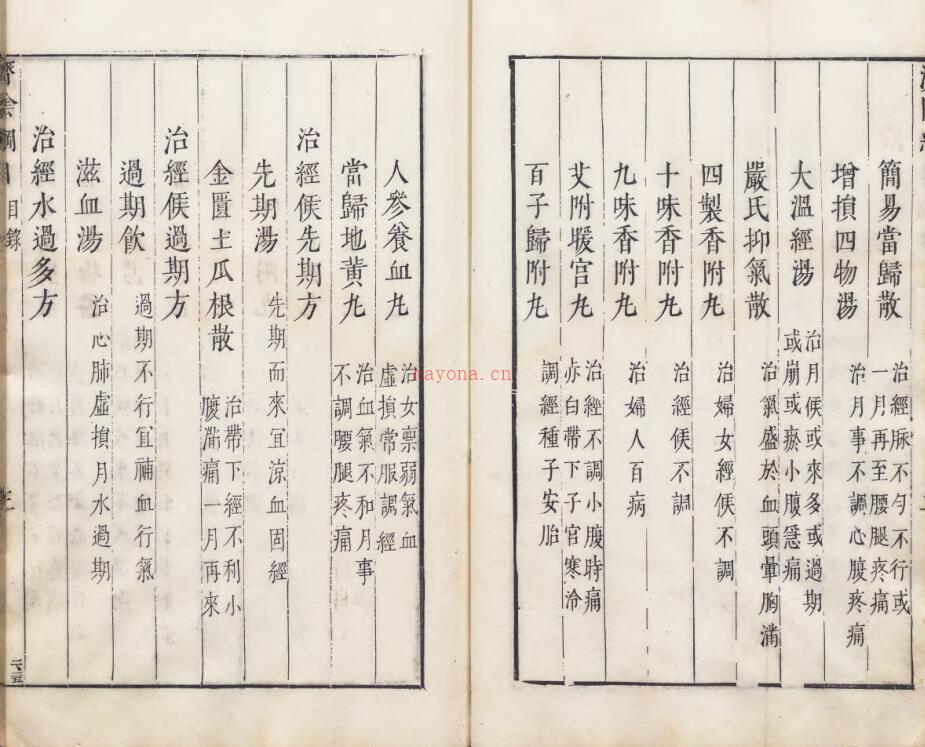 簡易當歸散 治經脉不勻不行或一月再至腰腿疼痛
增損四物湯 治月事不調心腹疼痛
大溫經湯 治月候或來多或過期或崩或瘀小腹急痛
嚴氏抑氣散 治氣盛於血頭暈胸滿
四製香附丸 治婦女經候不調
十味香附丸 治經候不調
九味香附丸 治婦人百病
艾附暖宮丸 治經不調小腹時痛赤白帶下子宮寒冷
百子歸附丸 調經種子安胎
人參養血丸 治女稟弱氣血虛損常服調經
當歸地黃丸 治血氣不和月事不調腰腿疼痛
治經候先期方
先期湯 先期而來宜涼血固經
金匱土瓜根散 治帶下經不利小腹滿痛一月再來
治經候過期方
過期飲 過期不行宜補血行氣
滋血湯 治心肺虛損月水過期
治經水過多方
濟陰綱目 目錄
kayona.cn